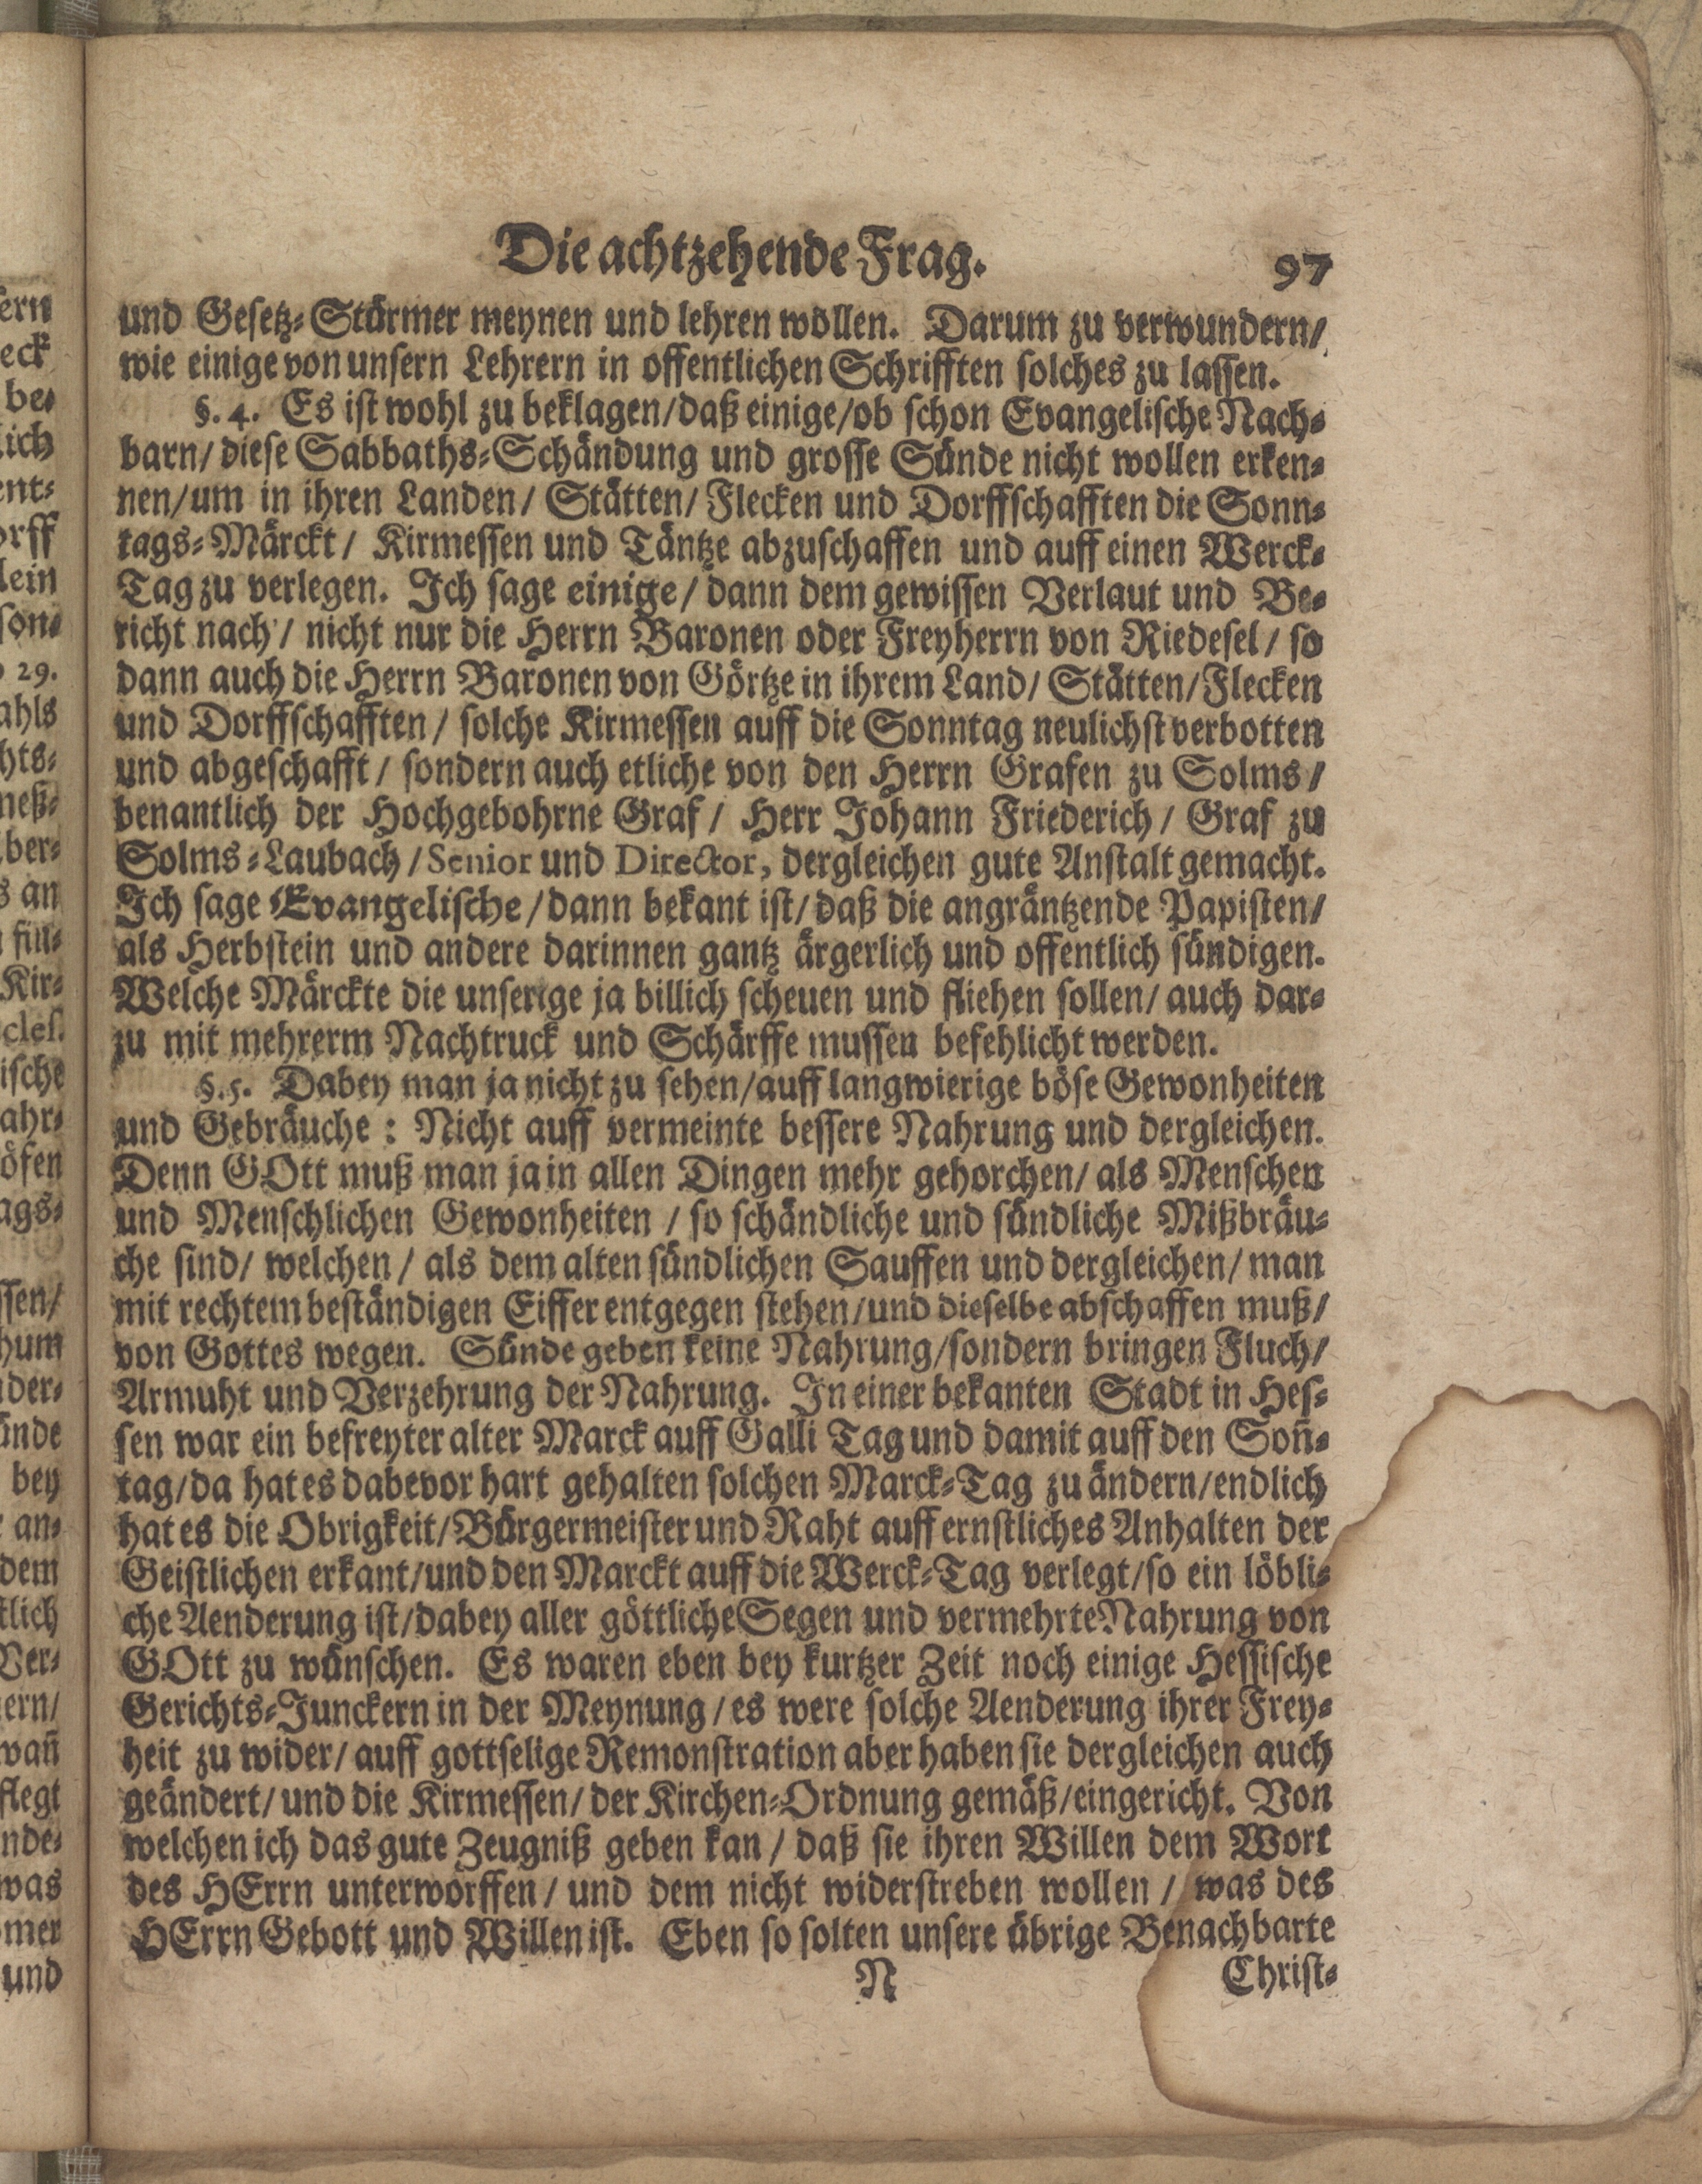 Die achtzehende Frag. 97
und Gesetz-Stürmer meynen und lehren wollen. Darum zu verwundern/
wie einige von unsern Lehrern in offentlichen Schrifften solches zu lassen.
§. 4. Es ist wohl zu beklagen/daß einige/ob schon Evangelische Nach-
barn/ diese Sabbaths-Schändung und grosse Sünde nicht wollen erken-
nen/um in ihren Landen/ Stätten/ Flecken und Dorffschafften die Sonn-
tags-Märckt/ Kirmessen und Täntze abzuschaffen und auff einen Werck-
Tag zu verlegen. Ich sage einige/ dann dem gewissen Verlaut und Be-
richt nach/ nicht nur die Herrn Baronen oder Freyherrn von Riedesel/ so
dann auch die Herrn Baronen von Görtze in ihrem Land/ Stätten/Flecken
und Dorffschafften/ solche Kirmessen auff die Sonntag neulichst verbotten
und abgeschafft/ sondern auch etliche von den Herrn Grafen zu Solms/
benantlich der Hochgebohrne Graf/ Herr Johann Friederich/ Graf zu
Solms-Laubach/Senior und Director, dergleichen gute Anstalt gemacht.
Ich sage Evangelische/dann bekant ist/daß die angräntzende Papisten/
als Herbstein und andere darinnen gantz ärgerlich und offentlich sündigen.
Welche Märckte die unserige ja billich scheuen und fliehen sollen/ auch dar-
zu mit mehrerm Nachtruck und Schärffe mussen befehlicht werden.
§. 5. Dabey man ja nicht zu sehen/auff langwierige böse Gewonheiten
und Gebräuche: Nicht auff vermeinte bessere Nahrung und dergleichen.
Denn GOtt muß man ja in allen Dingen mehr gehorchen/ als Menschen
und Menschlichen Gewonheiten/ so schändliche und sündliche Mißbräu-
che sind/ welchen/ als dem alten sündlichen Sauffen und dergleichen/ man
mit rechtem beständigen Eiffer entgegen stehen/und dieselbe abschaffen muß/
von Gottes wegen. Sünde geben keine Nahrung/sondern bringen Fluch/
Armuht und Verzehrung der Nahrung. In einer bekanten Stadt in Hes-
sen war ein befreyter alter Marck auff Galli Tag und damit auff den Soñ-
tag/da hat es dabevor hart gehalten solchen Marck-Tag zu ändern/endlich
hat es die Obrigkeit/Bürgermeister und Raht auff ernstliches Anhalten der
Geistlichen erkant/und den Marckt auff die Werck-Tag verlegt/so ein löbli-
che Aenderung ist/dabey aller göttliche Segen und vermehrte Nahrung von
GOtt zu wünschen. Es waren eben bey kurtzer Zeit noch einige Hessische
Gerichts-Junckern in der Meynung/es were solche Aenderung ihrer Frey-
heit zu wider/ auff gottselige Remonstration aber haben sie dergleichen auch
geändert/ und die Kirmessen/ der Kirchen-Ordnung gemäß/eingericht. Von
welchen ich das gute Zeugniß geben kan/ daß sie ihren Willen dem Wort
des HErrn unterworffen/ und dem nicht widerstreben wollen/ was des
HErrn Gebott und Willen ist. Eben so solten unsere übrige Benachbarte
N Christ-